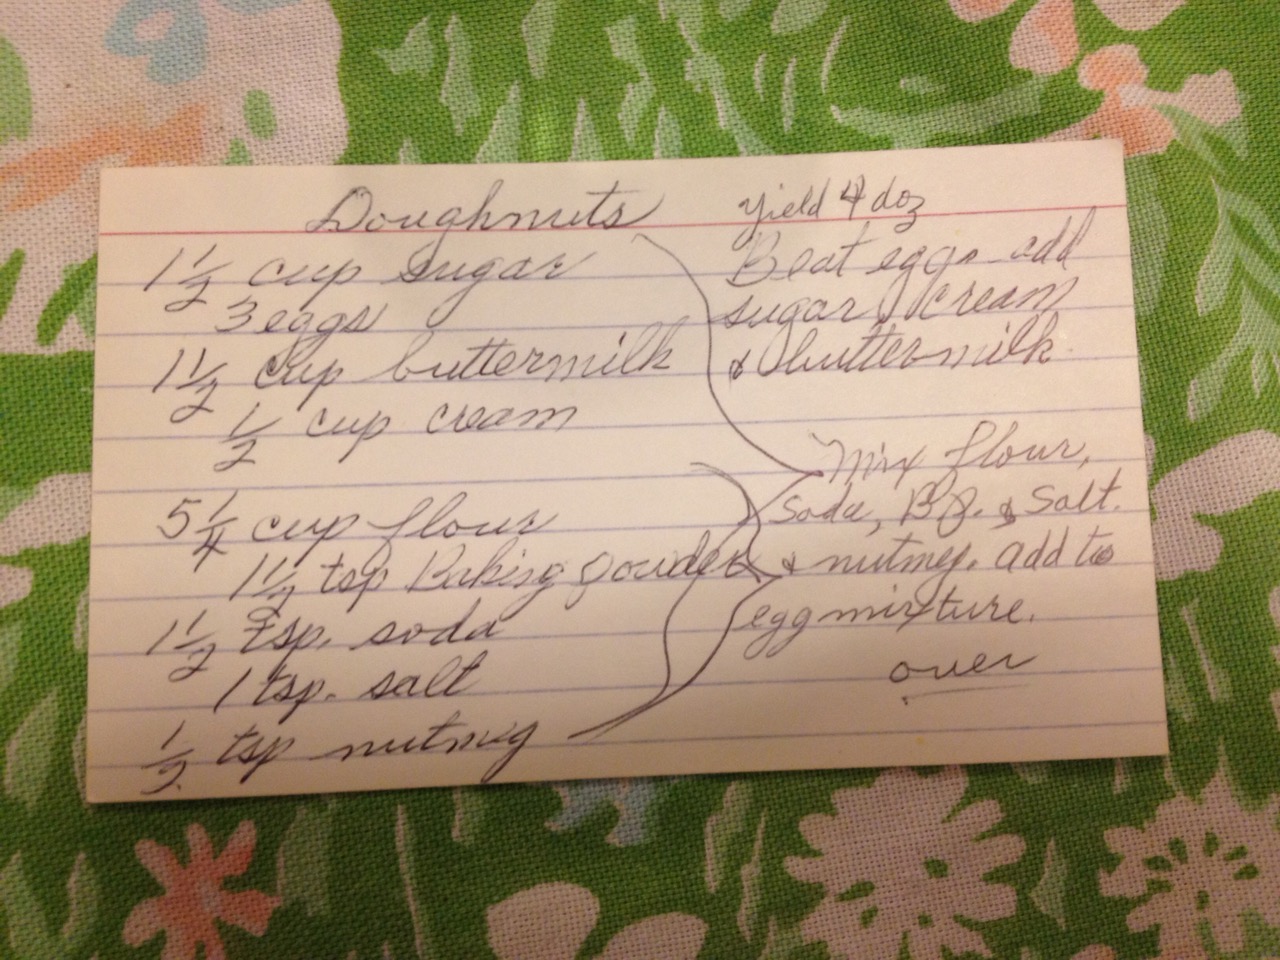 Doughnuts
1 1/2 cup sugar
3 eggs
1 1/2 cup buttermilk
1/2 cup cream
5 1/4 cup flour
1 1/2 tsp Baking Powder
1 1/2 tsp. soda
1 tsp. salt
1/2 tsp nutmeg
Yield 4 doz
Beat eggs add
sugar, cream
& buttermilk.
Mix flour,
Soda, B.P. & Salt.
& nutmeg. add to
egg mixture.
over